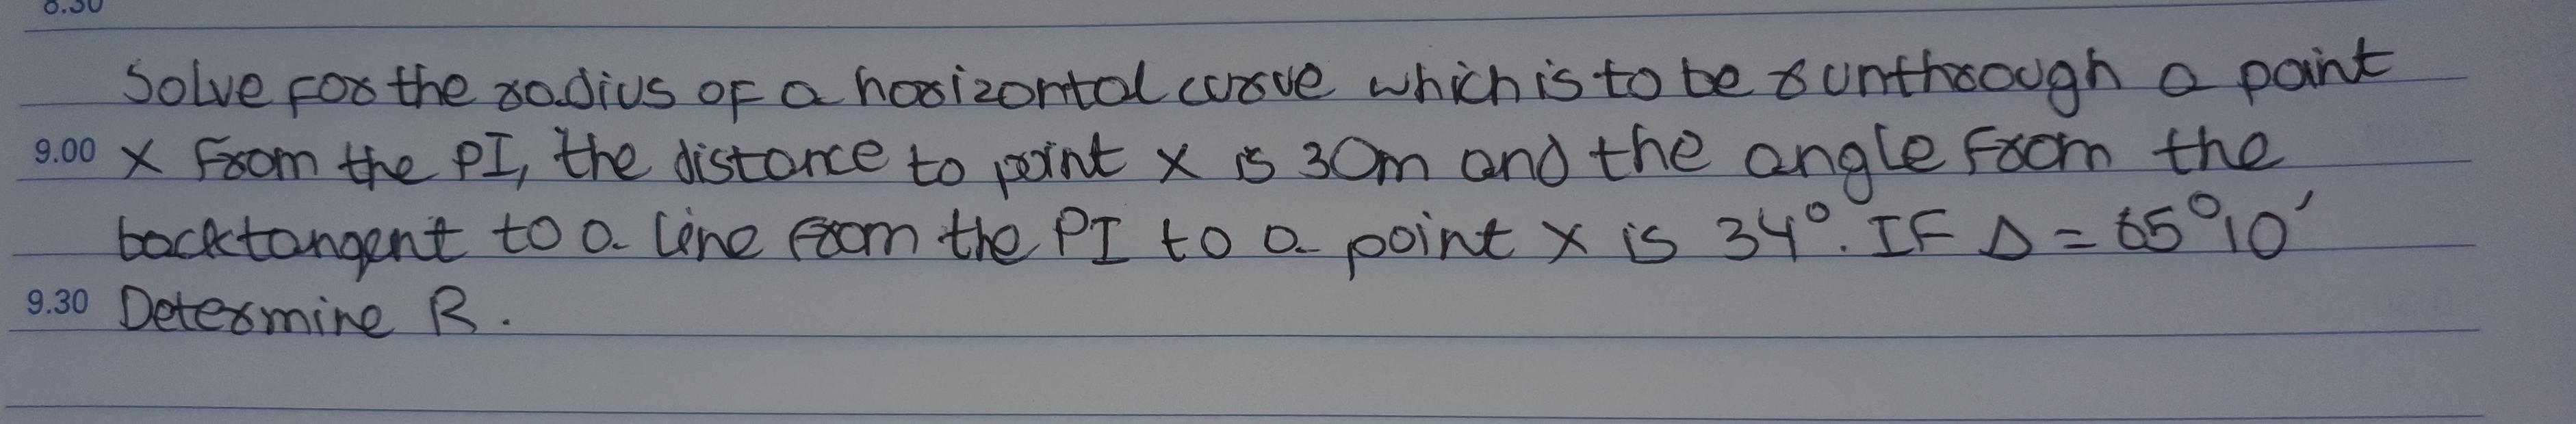 8.30
Solve for the radius of a horizontal curve which is to be run through a point
9.00 X From the PI, the distance to point X is 30m and the angle from the
backtangent to a line from the PI to a point X is 34°. IF Δ = 65°10'
9.30 Determine R.